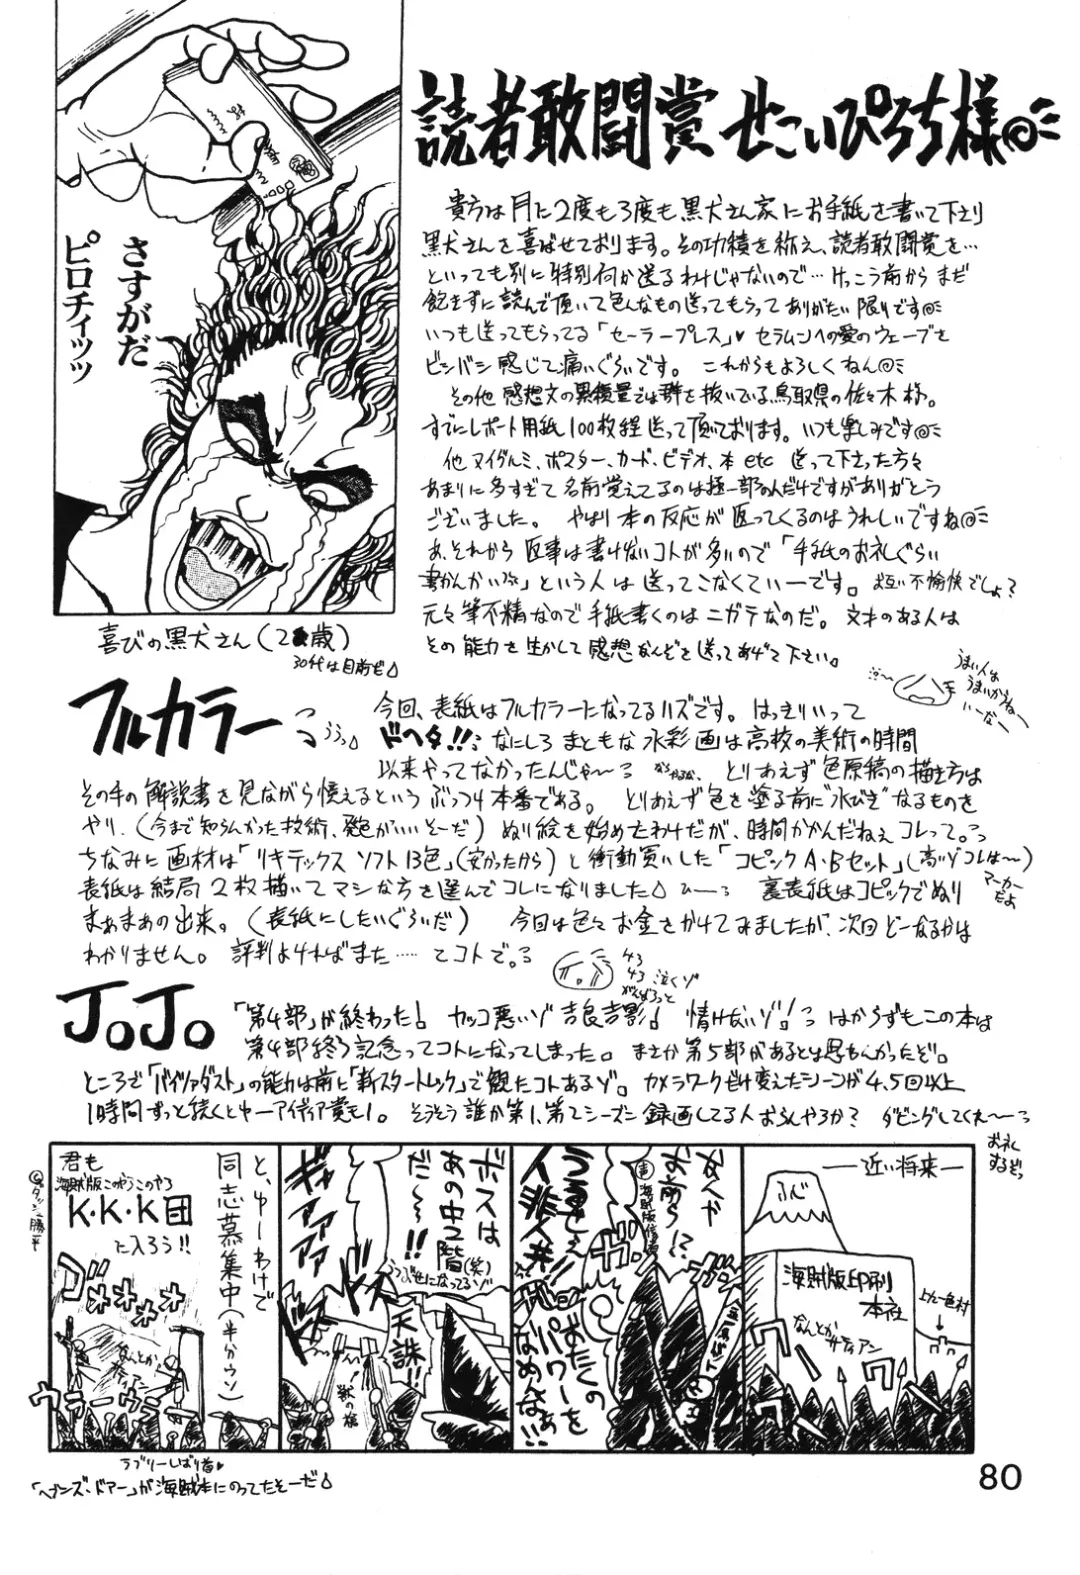 読者敢闘賞 せこいぴろち様
さすがだ
ピロチィッッ
喜びの黒犬さん(2歳)
30代は目前だ
貴方は月に2度も3度も黒犬さん家にお手紙を書いて下さり
黒犬さんを喜ばせております。その功積を称え、読者敢闘賞を…
といっても別に特別何か送るわけじゃないので…けっこう前からまだ
飽きずに読んで頂いて色んなもの送ってもらってありがたい限りです
いつも送ってもらってる「セーラープレス」♥ セラムンへの愛のウェーブを
ビシバシ感じて痛いぐらいです。 これからもよろしくねん
その他 感想文の量では群を抜いている鳥取県の佐々木様。
すでにレポート用紙100枚程送って頂いております。いつも楽しみです
他 ヌイグルミ、ポスター、カード、ビデオ、本 etc 送って下さった方々
あまりに多すぎて名前覚えてるのは極一部の人だけですがありがとう
ございました。 やはり本の反応が返ってくるのはうれしいですね
あ、それから 返事は書けないコトが多いので「手紙のお礼ぐらい
書かんかい」という人は送ってこなくていーです。お互い不愉快でしょ?
元々筆不精なので手紙書くのはニガテなのだ。文才のある人は
その能力を生かして感想なんぞを送ってあげて下さい。
うまい人は
うまいからねー
いーなー
フルカラー
うぅっ
今回、表紙はフルカラーになってるハズです。はっきりいって
ドヘタ!! なにしろまともな水彩画は高校の美術の時間
以来やってなかったんじゃ〜 とりあえず色原稿の描き方は
その手の解説書を見ながら憶えるというぶっつけ本番である。 とりあえず色を塗る前に"水びき"なるものを
やり、(今まで知らんかった技術、発色がいいそーだ)ぬり絵を始めたわけだが、時間かかんだねぇコレって。
ちなみに画材は「リキテックス ソフト13色」(安かったから)と衝動買いした「コピックA・Bセット」(高いゾコレは〜)
マーカーだよ
表紙は結局2枚描いてマシな方を選んでコレになりました 裏表紙はコピックでぬり
まぁまぁの出来。(表紙にしたいぐらいだ) 今回は色々お金をかけてみましたが、次回どーなるかは
わかりません。評判よければまた……てコトで。
泣くゾ
JoJo
「第4部」が終わった! カッコ悪いゾ吉良吉影! 情けないゾ! はからずもこの本は
第4部終了記念ってコトになってしまった。まさか第5部があるとは思わんかったぞ。
ところで「バイツァダスト」の能力は前に「新スタートレック」で観たコトあるゾ。カメラワークだけ変えたシーンが4,5回以上
1時間ずっと続くとゆーアイディア賞モノ。そうそう誰か第1、第2シーズン録画してる人おらんやろか? ダビングしてくれ〜
お礼
するぞっ
―近い将来―
ふじ
海賊版印刷
本社
上九一色村
なんとか
サティアン
ワー
女、人や
お前ら!?
うるせぇ
人非人共
おたくの
パワーを
なめんなぁ!!
ボスは
あの中2階(笑)
だ〜!!
うつぶせになってるゾ
天誅!!
ギャアアアア
と、ゆーわけで
同志募集中(半分ウソ)
君も
海賊版このやろこのやろ
K・K・K団
に入ろう!!
ゴオオオオ
なんとか
サティアン
ウラーウラー
ラブリーしばり首♥
「ヘブンズ・ドアー」が海賊本にのってたそーだ
80